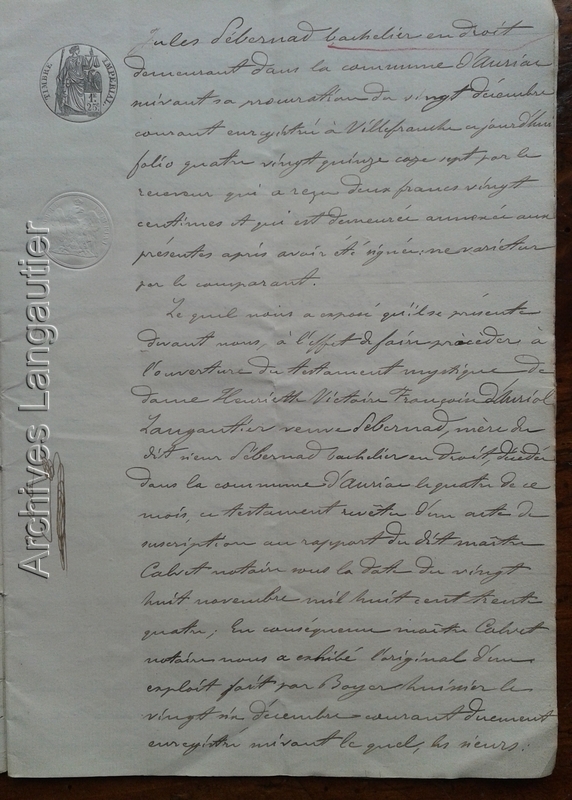 Jules Débernad bachelier en droit
demeurant dans la commune d'Auriac
suivant sa procuration du vingt décembre
courant enregistré à Villefranche ce jourd'hui
folio quatre vingt quinze case sept par le
receveur qui a reçu deux francs vingt
centimes et qui est demeurée annexée aux
présentes après avoir été signée, ne varietur
par le comparant.
Le quel nous a exposé qu'il se présente
devant nous, à l'effet de faire procéder à
l'ouverture du testament mystique de
dame Henriette Victoire Françoise d'Auriol
Langautier veuve Débernad, mère du
dit sieur Débernad bachelier en droit, décédée
dans la commune d'Auriac le quatre de ce
mois, ce testament revêtu d'un acte de
suscription au rapport du dit maître
Calvet notaire sous la date du vingt
huit novembre mil huit cent trente
quatre; En conséquence maître Calvet
notaire nous a exhibé l'original d'un
exploit fait par Boyer huissier le
vingt six décembre courant duement
enregistré suivant le quel, les sieurs:
TIMBRE IMPERIAL
1F
25C
Archives Langautier